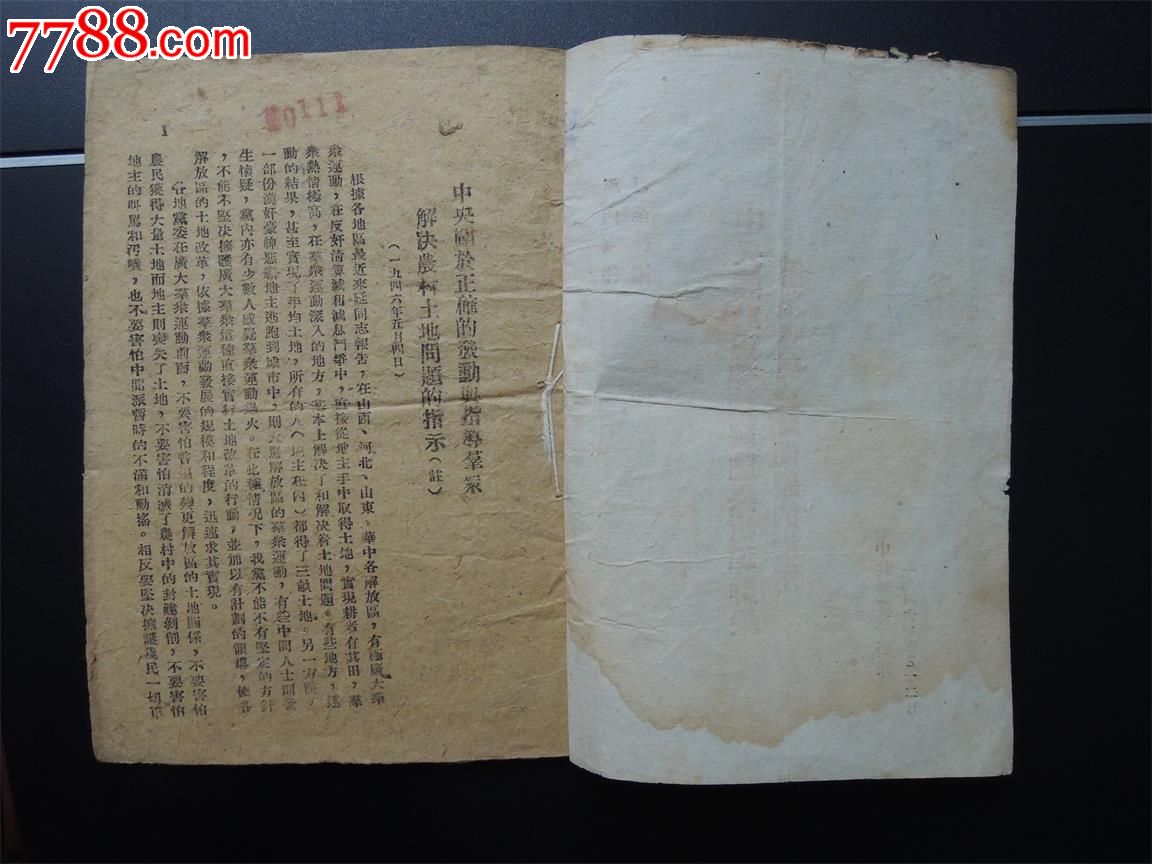 7788.com
中国收藏热线
0111
中央關於正確的發動與指導羣衆
解決農村土地問題的指示(註)
(一九四六年五月四日)
根據各地區最近來延同志報告,在山西、河北、山東、華中各解放區,有極廣大羣
衆運動,在反奸清算減租減息鬥爭中,直接從地主手中取得土地,實現耕者有其田,羣
衆熱情極高,在羣衆運動深入的地方,基本上解決了和解決着土地問題。有些地方,運
動的結果,甚至實現了平均土地,所有的人(地主在內)都得了三畝土地。另一方面,
一部份漢奸豪紳惡霸地主逃跑到城市中,則大罵解放區的羣衆運動,有些中間人士則發
生懷疑,黨內亦有少數人感覺羣衆運動過火。在此種情況下,我黨不能不有堅定的方針
,不能不堅決擁護廣大羣衆這種直接實行土地改革的行動,並加以有計劃的領導,使各
解放區的土地改革,依據羣衆運動發展的規模和程度,迅速求其實現。
各地黨委在廣大羣衆運動前面,不要害怕普遍的變更解放區的土地關係,不要害怕
農民獲得大量土地而地主則喪失了土地,不要害怕消滅了農村中的封建剝削,不要害怕
地主的叫罵和污衊,也不要害怕中間派暫時的不滿和動搖。相反要堅決擁護農民一切正
1